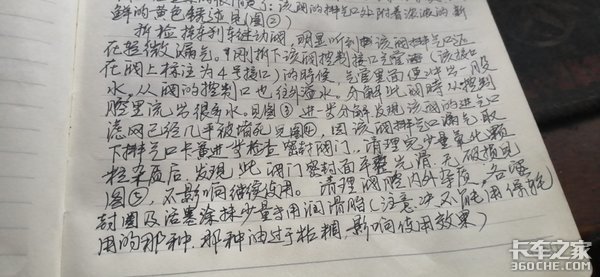 鲜的黄色锈迹见图②)
拆检挂车列车继动阀,明显听到该阀排气口处
在轻微漏气。刚拆下该阀控制接口气管(该接口
在阀上标注为4号接口)的时候,气管里面便冲出一股
水,从阀的控制口也往外溢水。分解此阀时从控制
腔里流出很多水。见图③进一步分解发现该阀的进气口
滤网已经几乎被堵死见图④,因该阀排气口漏气取
下排气口卡簧进步检查密封阀门,清理完少量氧化颗
粒杂质后,发现此阀门密封面平整光滑,无破损见
图⑤,不影响继续使用。清理阀腔内外杂质,在密
封圈及活塞涂抹少量专用润滑脂(注意:决不能用保养
用的那种,那种油过于粘稠,影响使用效果)
卡车之家
360che.com